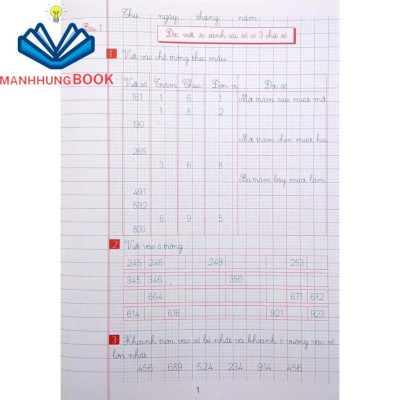 MANHHUNGBOOK
Thứ ngày tháng năm
Bài 1
Đọc viết so sánh các số có 3 chữ số
1 Viết vào chỗ trống theo mẫu
Viết số Trăm Chục Đơn vị Đọc số
161 1 6 1 Một trăm sáu mươi mốt
1 8 2
190
Một trăm chín mươi hai
265
3 6 8
Ba trăm bảy mươi lăm
491
592
6 9 5
800
2 Viết vào ô trống
245 246 249 253
345 346 350
664 671 672
614 616 921 923
3 Khoanh tròn vào số bé nhất và khoanh ô vuông vào số
lớn nhất
456 689 524 234 914 456
1